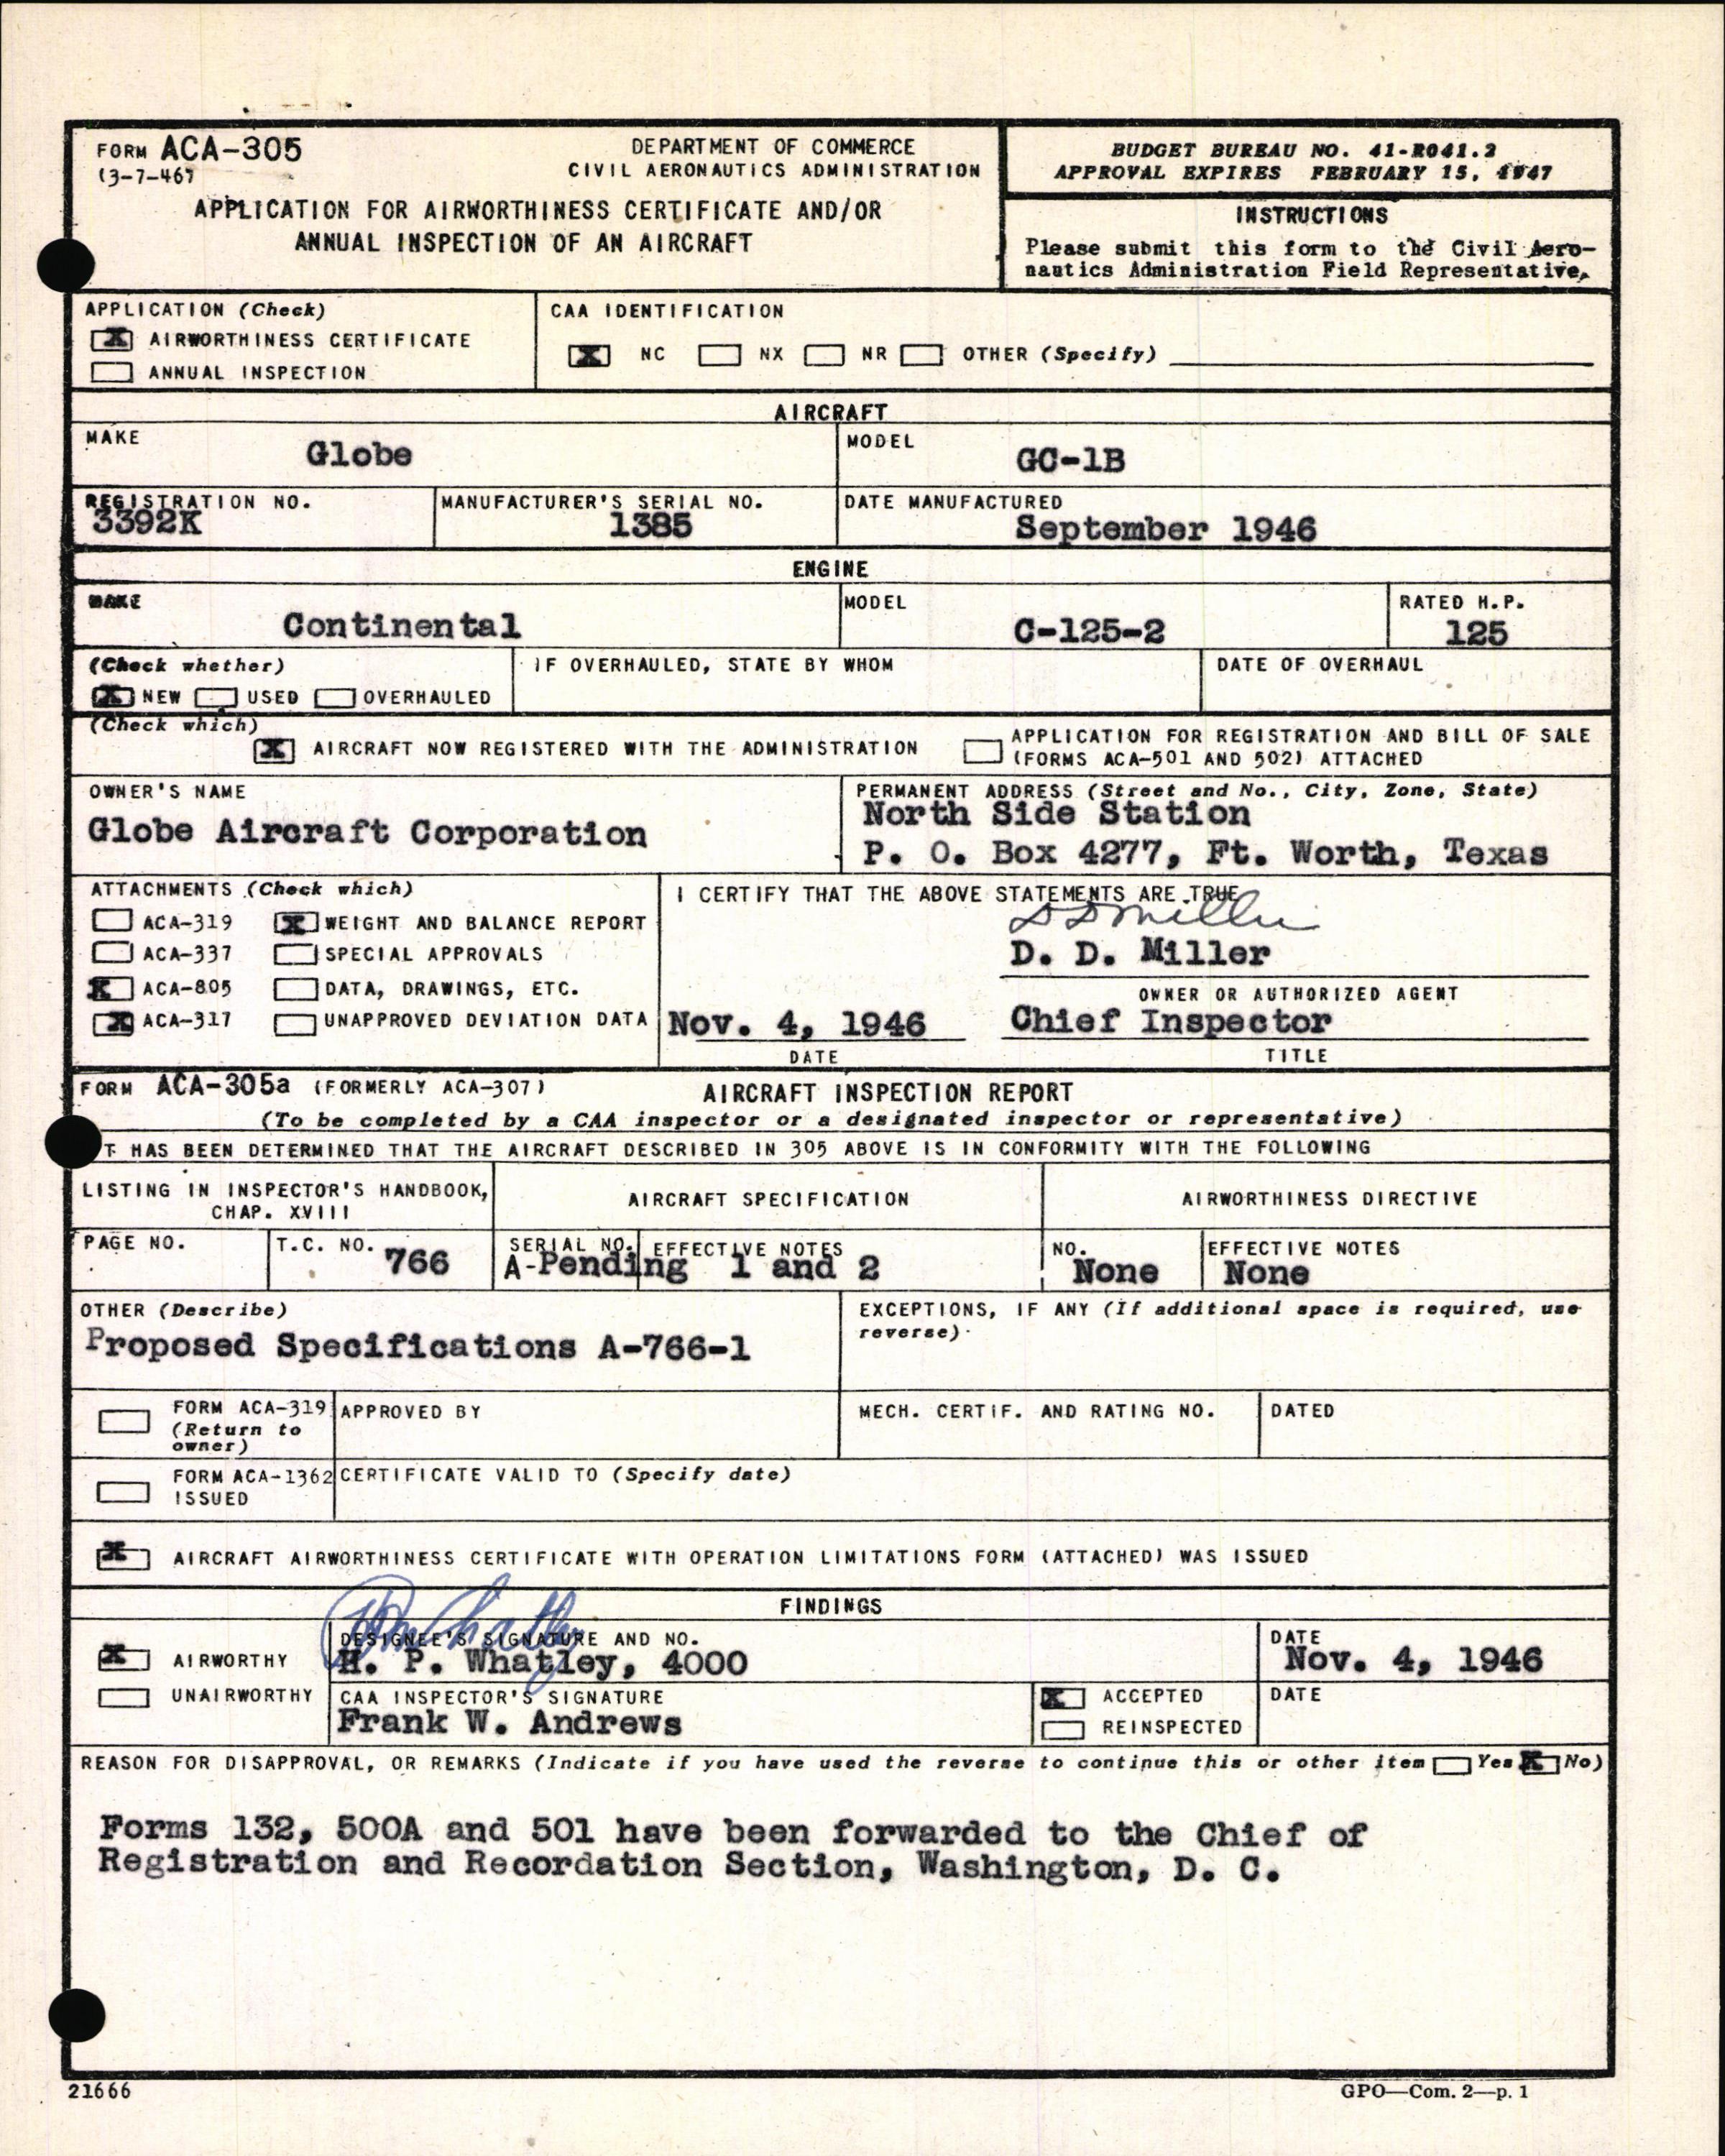 FORM ACA-305
(3-7-46)
DEPARTMENT OF COMMERCE
CIVIL AERONAUTICS ADMINISTRATION
APPLICATION FOR AIRWORTHINESS CERTIFICATE AND/OR
ANNUAL INSPECTION OF AN AIRCRAFT
BUDGET BUREAU NO. 41-R041.2
APPROVAL EXPIRES FEBRUARY 15, 1947
INSTRUCTIONS
Please submit this form to the Civil Aero-
nautics Administration Field Representative.
APPLICATION (Check)
X AIRWORTHINESS CERTIFICATE
ANNUAL INSPECTION
CAA IDENTIFICATION
X NC NX NR OTHER (Specify)
AIRCRAFT
MAKE
Globe
MODEL
GC-1B
REGISTRATION NO.
3392K
MANUFACTURER'S SERIAL NO.
1385
DATE MANUFACTURED
September 1946
ENGINE
MAKE
Continental
MODEL
C-125-2
RATED H.P.
125
(Check whether)
X NEW USED OVERHAULED
IF OVERHAULED, STATE BY WHOM
DATE OF OVERHAUL
(Check which)
X AIRCRAFT NOW REGISTERED WITH THE ADMINISTRATION
APPLICATION FOR REGISTRATION AND BILL OF SALE
(FORMS ACA-501 AND 502) ATTACHED
OWNER'S NAME
Globe Aircraft Corporation
PERMANENT ADDRESS (Street and No., City, Zone, State)
North Side Station
P. O. Box 4277, Ft. Worth, Texas
ATTACHMENTS (Check which)
ACA-319 X WEIGHT AND BALANCE REPORT
ACA-337 SPECIAL APPROVALS
X ACA-805 DATA, DRAWINGS, ETC.
X ACA-317 UNAPPROVED DEVIATION DATA
I CERTIFY THAT THE ABOVE STATEMENTS ARE TRUE
D D Miller
D. D. Miller
OWNER OR AUTHORIZED AGENT
Nov. 4, 1946 Chief Inspector
DATE TITLE
FORM ACA-305a (FORMERLY ACA-307) AIRCRAFT INSPECTION REPORT
(To be completed by a CAA inspector or a designated inspector or representative)
T HAS BEEN DETERMINED THAT THE AIRCRAFT DESCRIBED IN 305 ABOVE IS IN CONFORMITY WITH THE FOLLOWING
LISTING IN INSPECTOR'S HANDBOOK,
CHAP. XVIII
AIRCRAFT SPECIFICATION
AIRWORTHINESS DIRECTIVE
PAGE NO.
T.C. NO. 766
SERIAL NO. EFFECTIVE NOTES
A-Pending 1 and 2
NO.
None
EFFECTIVE NOTES
None
OTHER (Describe)
Proposed Specifications A-766-1
EXCEPTIONS, IF ANY (If additional space is required, use
reverse).
FORM ACA-319
(Return to
owner)
APPROVED BY
MECH. CERTIF. AND RATING NO.
DATED
FORM ACA-1362
ISSUED
CERTIFICATE VALID TO (Specify date)
X AIRCRAFT AIRWORTHINESS CERTIFICATE WITH OPERATION LIMITATIONS FORM (ATTACHED) WAS ISSUED
FINDINGS
X AIRWORTHY
UNAIRWORTHY
HP Whatley
DESIGNEE'S SIGNATURE AND NO.
H. P. Whatley, 4000
DATE
Nov. 4, 1946
CAA INSPECTOR'S SIGNATURE
Frank W. Andrews
X ACCEPTED
REINSPECTED
DATE
REASON FOR DISAPPROVAL, OR REMARKS (Indicate if you have used the reverse to continue this or other item Yes X No)
Forms 132, 500A and 501 have been forwarded to the Chief of
Registration and Recordation Section, Washington, D. C.
21666
GPO—Com. 2—p. 1